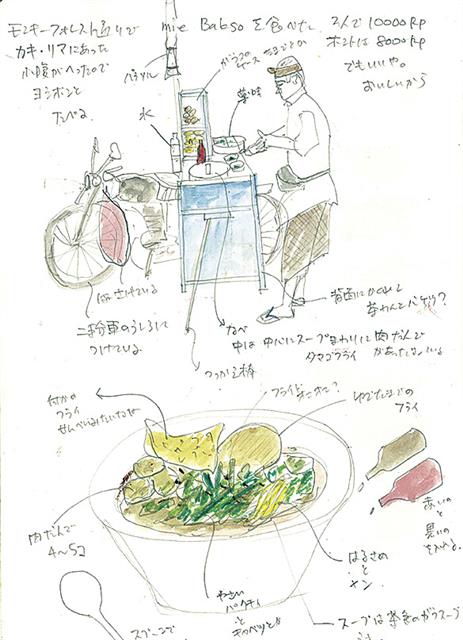 モンキーフォレスト通りで
カキ・リマにあった
小腹がへったので
ヨシボンと
たべる
mie Babso を食べた
2人で 10000 Rp
ホントは 8000 Rp
でもいいや。
おいしいから
パラソル
ガラスの
ケース
氷
薬味
付さげている
二輪車のうしろに
つけている
なべ
中は 中心にスープ まわりに 肉だんで
タマゴフライ
つっかえ棒
背面に
茶わんと
フライ
ゆでたまごの
フライ
せんべいみたいなやつ
肉だんご
4〜5コ
やさい
パクチィ
と
キャベツとか
はるさめ
と
メン
赤いの
と
黒いの
を入れる
スプーンで
スープは茶色のガラスープ